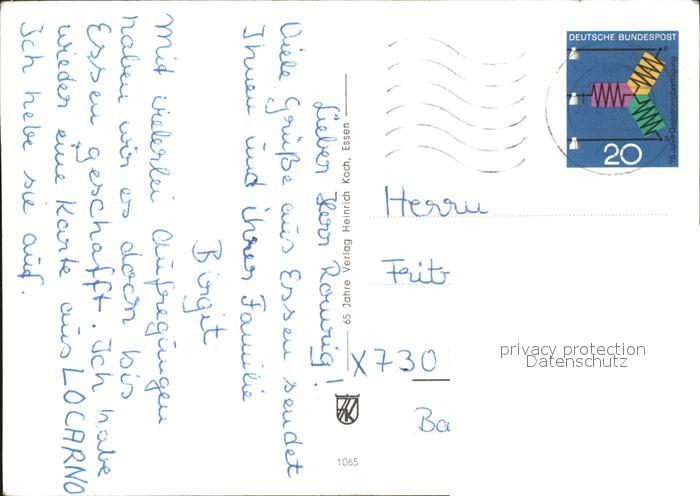 Lieber Herr Rowrig!
Viele Grüße aus Essen sendet
Ihnen und ihrer Familie
Birgit
Mit vielerlei Aufregungen
haben wir es doch bis
Essen geschafft. Ich habe
wieder eine Karte aus LOCARNO
Ich hebe sie auf.
65 Jahre Verlag Heinrich Koch, Essen
1065
DEUTSCHE BUNDESPOST
R
S
T
75 Jahre Drehstromübertragung
20
Herrn
Frit
X730
Ba
privacy protection
Datenschutz